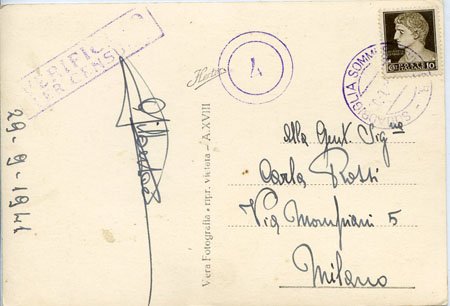 VERIFICATO
PER CENSURA
A
29-9-1941
Vera Fotografia - ripr. vietata - A. XVIII
10
Alla Gent. Signa
Carla Rossi
Via Mompiani 5
Milano